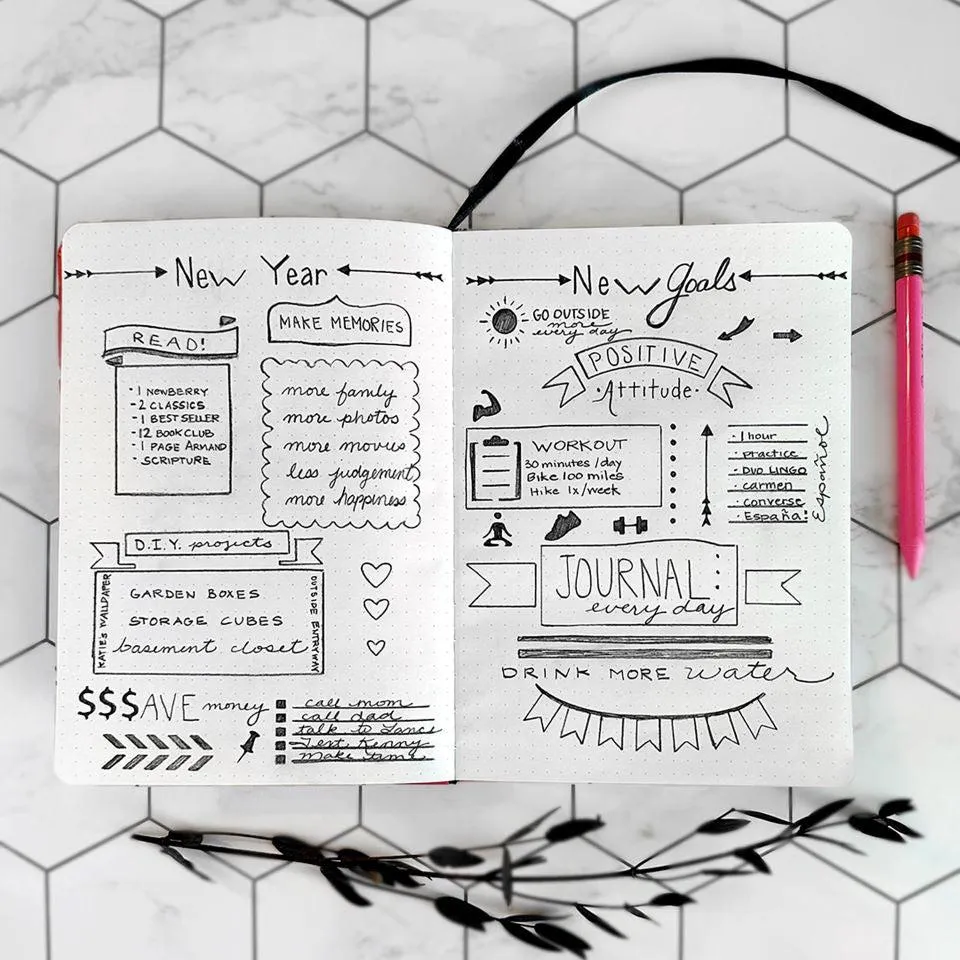 New Year
READ!
- 1 NEWBERRY
- 2 CLASSICS
- 1 BEST SELLER
- 12 BOOK CLUB
- 1 PAGE ARMAND
- SCRIPTURE
MAKE MEMORIES
more family
more photos
more movies
less judgement
more happiness
D.I.Y. projects
KATIE'S WALLPAPER
GARDEN BOXES
STORAGE CUBES
basement closet
OUTSIDE ENTRYWAY
$$$AVE money
call mom
call dad
talk to Lance
Text Kenny
make time
New Goals
GO OUTSIDE
more
every day
POSITIVE
·Attitude·
WORKOUT
30 minutes /day
Bike 100 miles
Hike 1x/week
· 1 hour
· practice
· DUO LINGO
· carmen
· converse
· España!
Español
JOURNAL
every day
DRINK MORE water